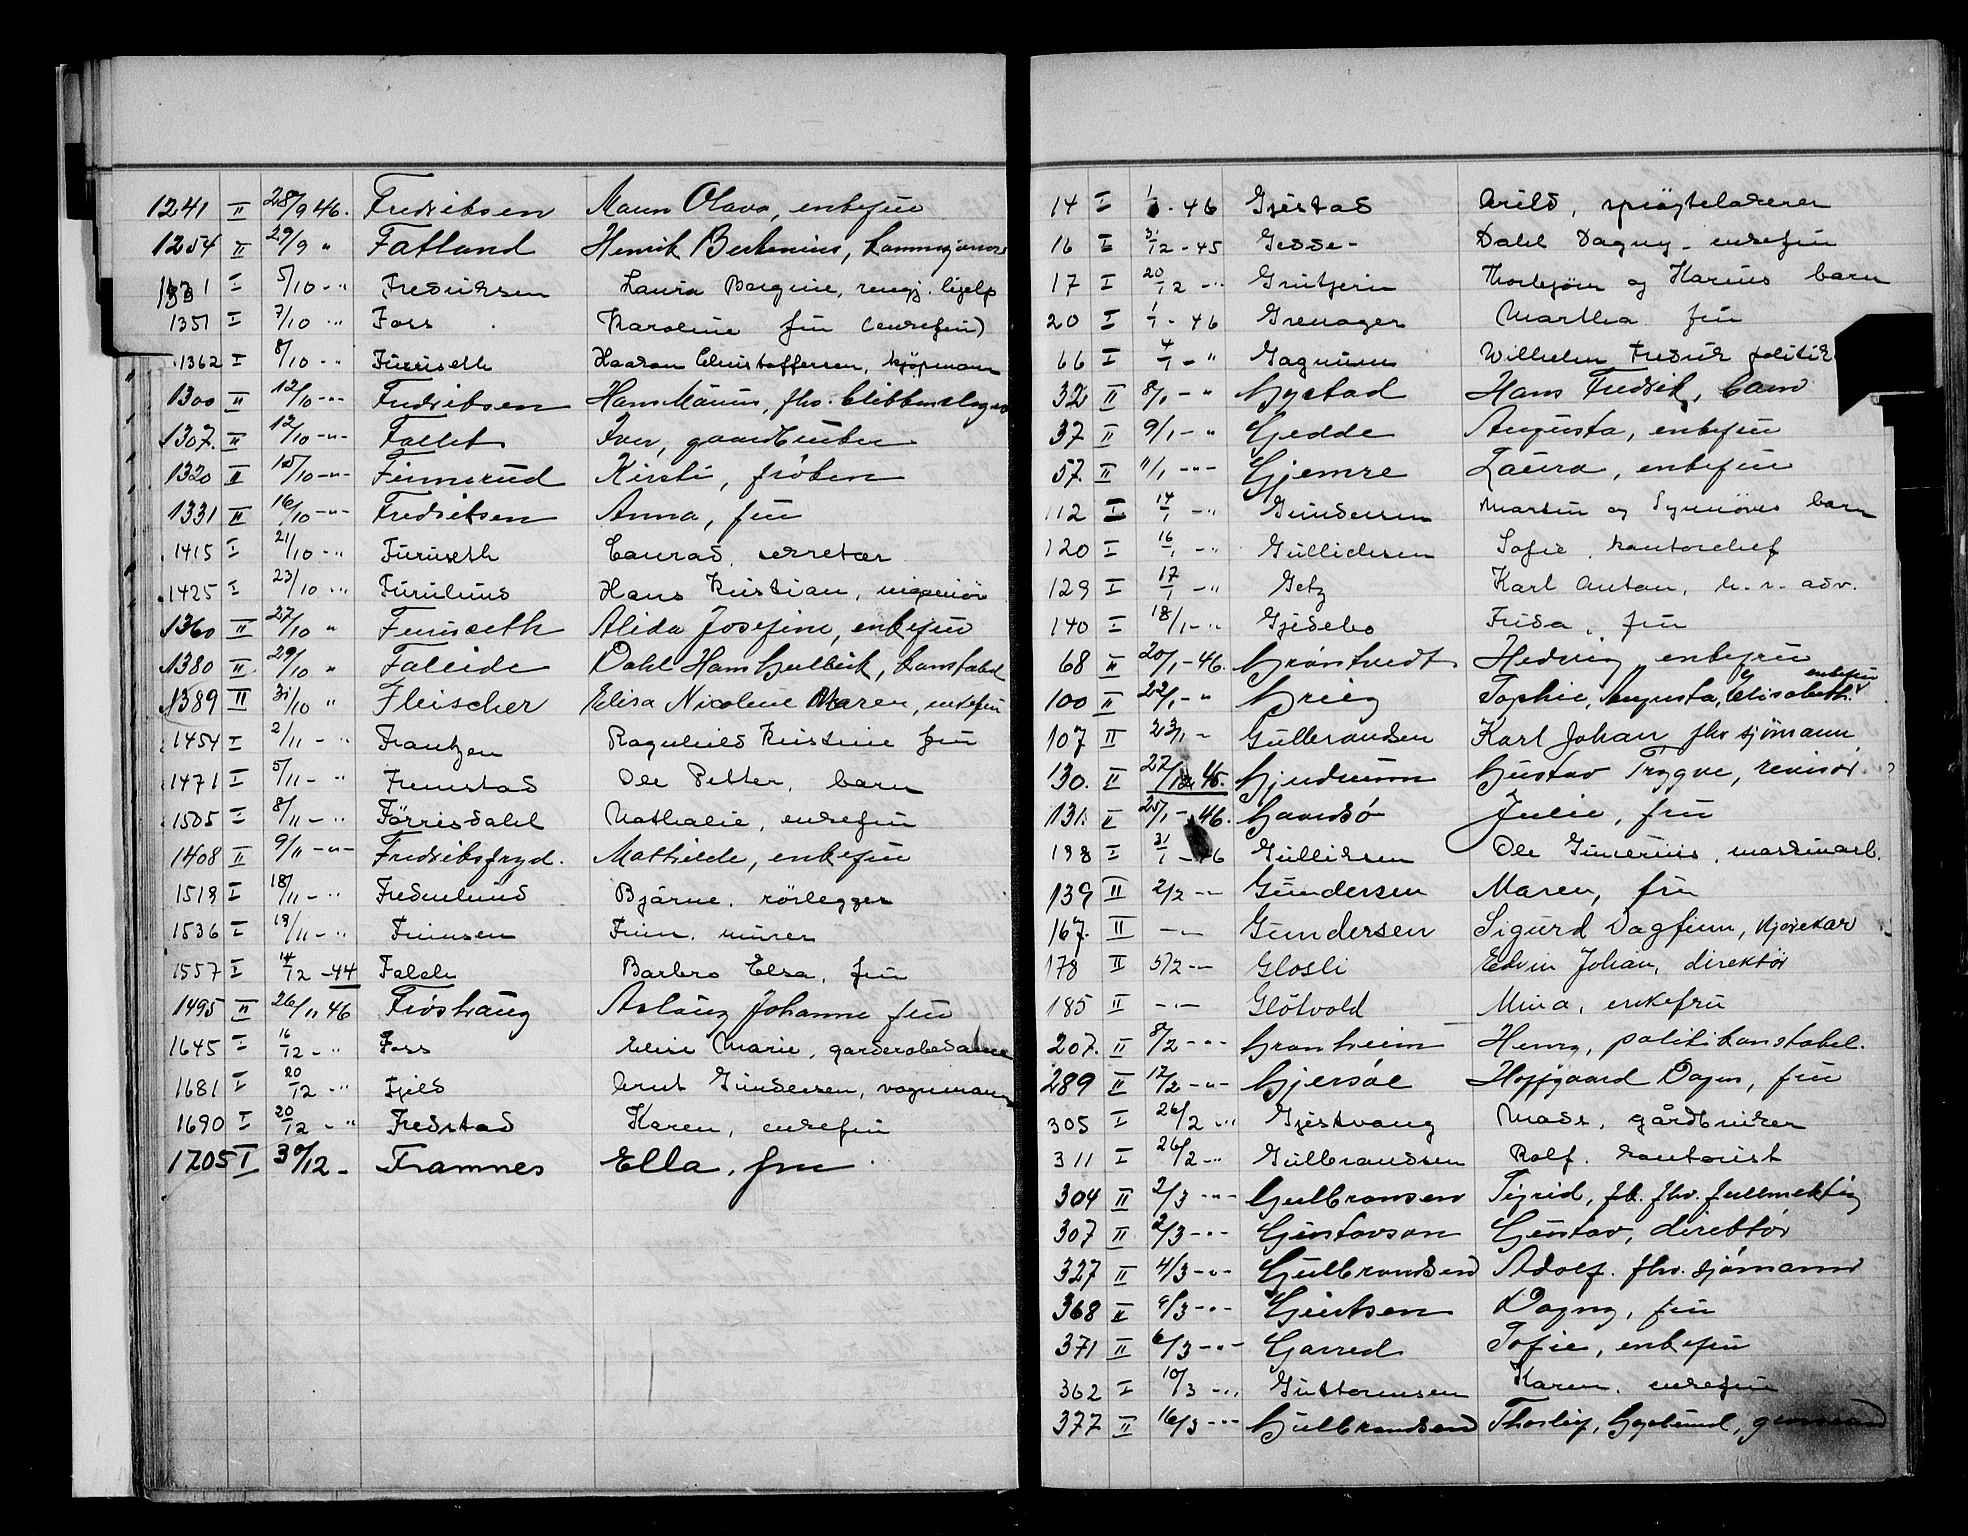 1241 II 28/9 46. Fredriksen Maren Olava, enkefru
1254 II 29/9 " Fatland Henrik Berthinius,
I 5/10 - " Fredriksen Laura Bergine, rengj. hjelp
1351 I 7/10 - " Foss Karoline fru (enkefru)
1362 I 8/10 - " Furuseth Haakon Christoffersen, kjøpmann
1300 II 12/10 - " Fredriksen Hans Maurus, fhv.
1307. II 12/10 - " - Falleth Iver, gaardbruker
1320 II 15/10 - " - Finnerud Kirsti, frøken
1331 II 16/10 - " - Fredriksen Anna, fru
1415 I 21/10 - " Furuseth Conrad, sekretær
1425 I 23/10 - " Furulund Hans Kristian, ingeniør
1360 II 27/10 " Furuseth Alida Josefine, enkefru
1380 II 29/10 " Falleide Dahl Hans Gulbrik, konstabel
1389 II 31/10 " Fleischer Elisa Nicoline Maren, enkefru
1454 I 2/11 - " Frantzen Ragnhild Kristine fru
1471 I 5/11 - " Fremstad Ole Petter, barn
1505 I 8/11 - " Førrisdahl Nathalie, enkefru
1408 II 9/11 - " - Fredriksfryd. Mathilde, enkefru
1519 I 18/11 - " Fredenlund Bjarne, rørlegger
1536 I 19/11 - " Finnsen Finn, murer
1557 I 14/12 - 44 Falch Barbro Elsa, fru
1495 II 26/11 46 Frøshaug Aslaug Johanne fru
1645 I 16/12 - " Foss Elise Marie, garderobedame
1681 I 20/12 - " Fjeld Knut Gundersen, vognmann
1690 I 20/12 - " Fredstad Karen, enkefru
1705 I 30/12 - Framnes Ella, fru
14 I 1/ - 46 Gjestad Arild, sprøytelakerer
16 I 31/12 - 45 Gedde - Dahl Dagny - enkefru
17 I 20/12 - " Thorbjørn og Karins barn
20 I 1/1 - 46 Grenager Martha fru
66 I 4/1 - " Gagnum Wilhelm Fredrik politik
32 II 8/1 - " Gystad Hans Fredrik, barn
37 II 9/1 - " Gedde Augusta, enkefru
57. II 11/1 - " - Gjemre Laura, enkefru
112 I 14/1 - " Gundersen Martin og Synnøves barn
120 I 16/1 - " Gullichsen Sofie, kontorchef
129 I 17/1 - " Getz Karl Anton, h. r. adv.
140 I 18/1 - " Gjedebo Frida, fru
68 II 20/1 - 46. Grøntvedt Hedvig enkefru
100 II 22/1 - " Grieg Sophie, Augusta, Elisabeth. enkefru
107 II 23/1 - Gulbrandsen Karl Johan fhv sjømann
130. II 27/12 45. Gjudrum Gustav Trygve, revisor.
131. II 25/1 - 46. Gaardsø Julie, fru
138 I 31/1 - 46 Gulliksen Ole Gunerius, maskinarb.
139 II 2/2 - " Gundersen Maren, fru
167. II - " - Gundersen Sigurd Dagfinn, kjørekar
178 II 5/2 - " Glosli Edvin Johan, direktør
185 II - " - Gløtvold Mina, enkefru
207. II 8/2 - " - Granheim Henry, politikonstabel.
289 II 17/2 - " - Gjersøe Hoffgaard Dagny, fru
305 I 26/2 - " Gjestvang Mads, gårdbruker
311 I 26/2 - " Gulbrandsen Rolf, kontorist
304 II 2/3 - " - Gulbransen Sigrid, fk. fhv. fullmektig
307 II 2/3 - " - Gustavson Gustav, direktør
327 II 4/3 - " - Gulbrandsen Adolf, fhv. sjømann
368 II 6/3 - " - Dagny, fru
371 II 6/3 - " - Garred Sofie, enkefru
362 I 10/3 - " Guttormsen Karen, enkefru
377 II 16/3 - " - Gulbrandsen Thorleif,